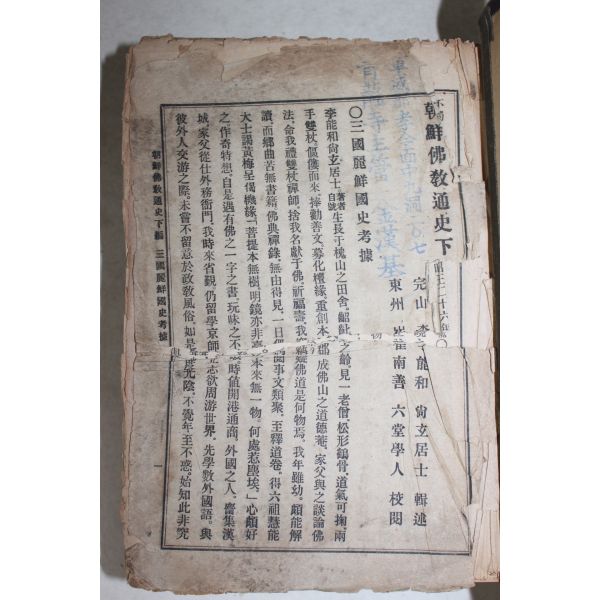 朝鮮佛教通史下
完山 李能和 尙玄居士 輯述
東州 崔南善 六堂學人 校閱
〇三國麗鮮國史考據
李能和尙玄居士 著者自號 生長于槐山之田舍。齠齔之齡。見一老僧。松形鶴骨。道氣可掬。兩
手雙杖。傴僂而來。捧勸善文。募化檀緣。重創本郡成佛山之道德菴。家父與之談論佛
法。命我禮雙杖禪師。捨我名獻于佛。祈福壽。我竊疑佛道是何物焉。我年雖幼。頗能解
讀。而鄕曲苦無書籍。佛典禪錄。無由得見。一日偶閱事文類聚。至釋道卷。得六祖慧能
大士謁黃梅呈偈機緣。「菩提本無樹。明鏡亦非臺。本來無一物。何處惹塵埃。」心頗好
之。作奇特想。自是遇有佛之一字之書。玩味之不 時値開港通商。外國之人。齎集漢
城。家父從仕外務衙門。我時來省覲。仍留學京師。 志欲周游世界。先學數外國語。與
彼外人交游之際。未嘗不留意於政敎風俗。如是 度光陰。不覺年至不惑。始知此非究
朝鮮佛敎通史下編 三國麗鮮國史考據
一